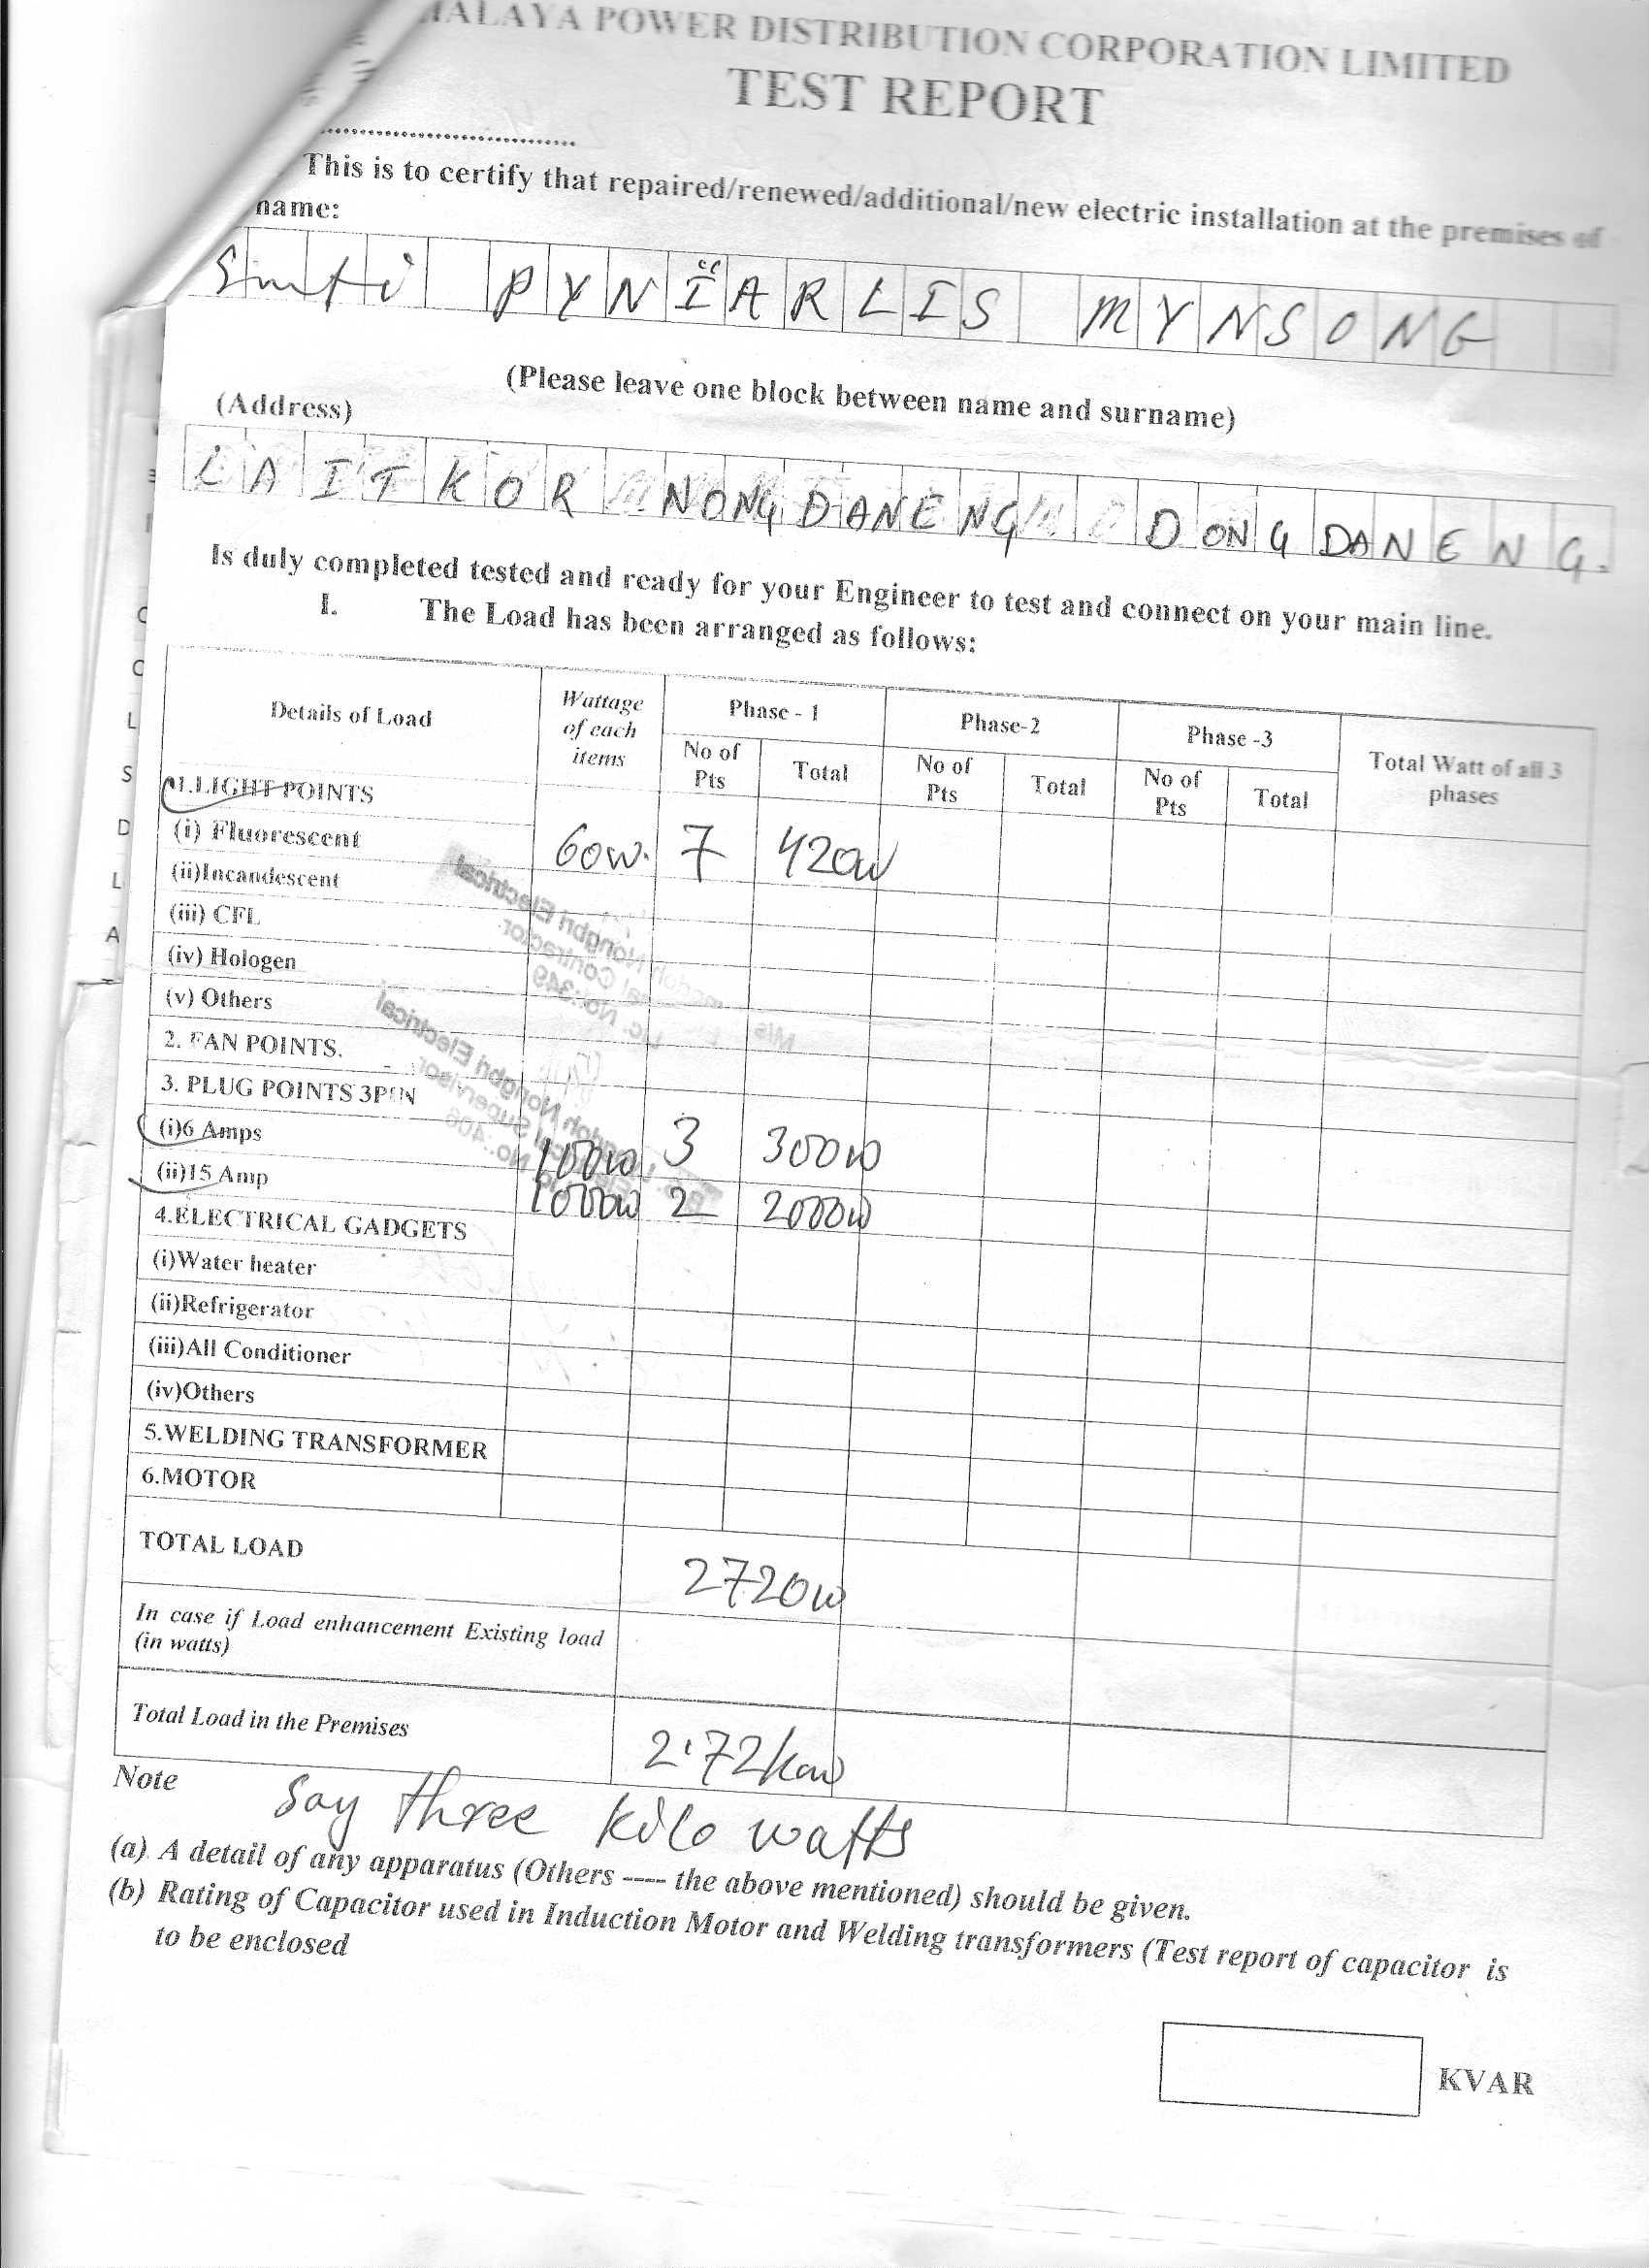 ALAYA POWER DISTRIBUTION CORPORATION LIMITED
TEST REPORT
This is to certify that repaired/renewed/additional/new electric installation at the premises of
name:
Smti PYNÏARLIS MYNSONG
(Please leave one block between name and surname)
(Address)
LAITKOR NONGDANENG DONGDANENG.
Is duly completed tested and ready for your Engineer to test and connect on your main line.
I. The Load has been arranged as follows:
Details of Load Wattage of each items Phase - 1 Phase-2 Phase -3 Total Watt of all 3 phases
No of Pts Total No of Pts Total No of Pts Total
1.LIGHT POINTS
(i) Fluorescent 60w. 7 420w
(ii)Incandescent
(iii) CFL
(iv) Hologen
(v) Others
2. FAN POINTS.
3. PLUG POINTS 3PIN
(i)6 Amps 100w 3 300w
(ii)15 Amp 1000w 2 2000w
4.ELECTRICAL GADGETS
(i)Water heater
(ii)Refrigerator
(iii)All Conditioner
(iv)Others
5.WELDING TRANSFORMER
6.MOTOR
TOTAL LOAD 2720w
In case if Load enhancement Existing load
(in watts)
Total Load in the Premises 2.72kw
Note Say three kilo watts
(a) A detail of any apparatus (Others ---- the above mentioned) should be given.
(b) Rating of Capacitor used in Induction Motor and Welding transformers (Test report of capacitor is
to be enclosed
KVAR